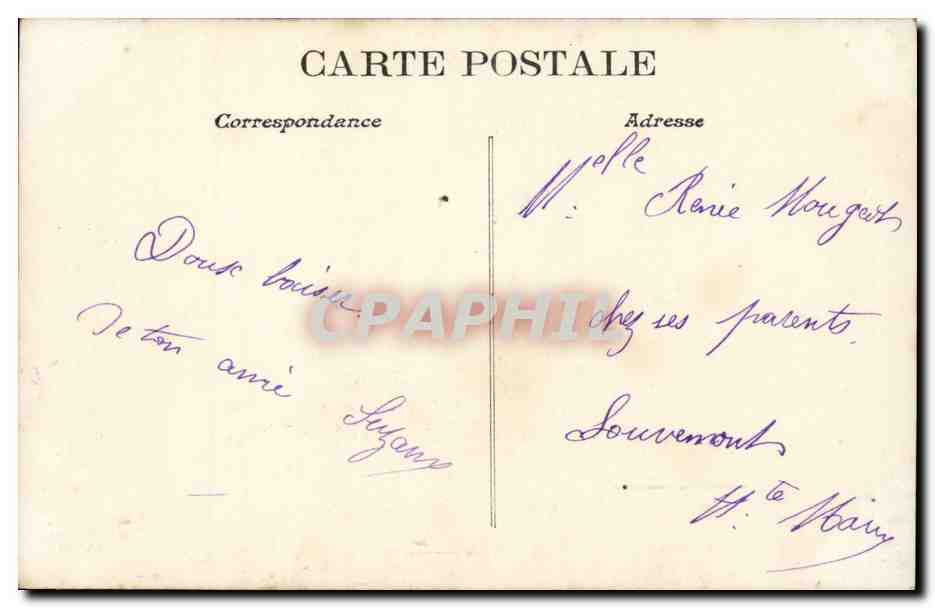 CARTE POSTALE
Correspondance
Doux baiser
de ton amie
Suzanne
Adresse
Melle Renée Mougeot
chez ses parents.
Louvemont
Hte Marne
CPAPHIL